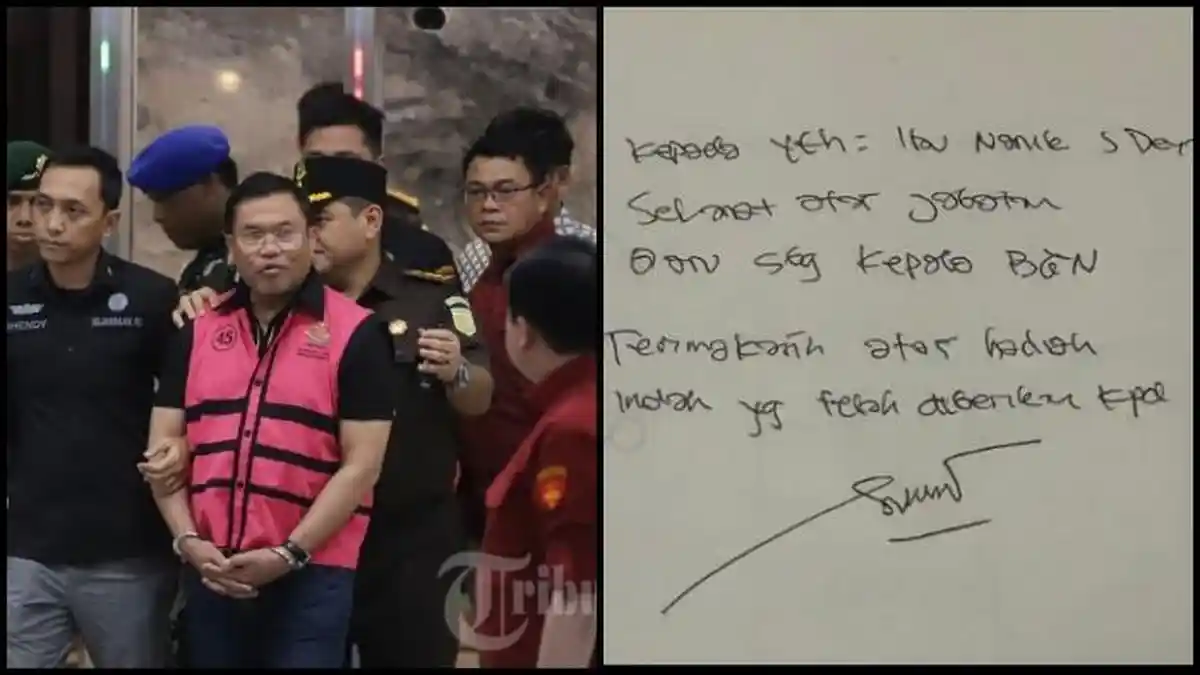 45
HENDY
Tribu
Kepada yth: Ibu Nanik S Dey
Selamat atas jabatan
sbg Kepala BGN
Terimakasih atas hadiah
Indah yg telah diberikan kpd